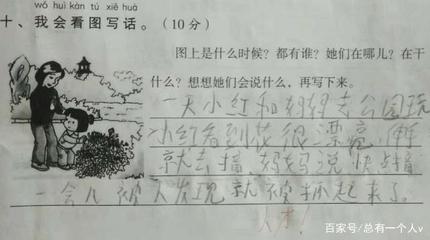 wǒ huì kàn tú xiě huà
十、我会看图写话。(10分)
图上是什么时候？都有谁？她们在哪儿？在干
什么？想想她们会说什么，再写下来。
一天小红和妈妈去公园玩
小红看到花很漂亮,
就去摘,妈妈说快摘
一会儿被人发现就被抓起来了。
人才!
百家号/总有一个人v